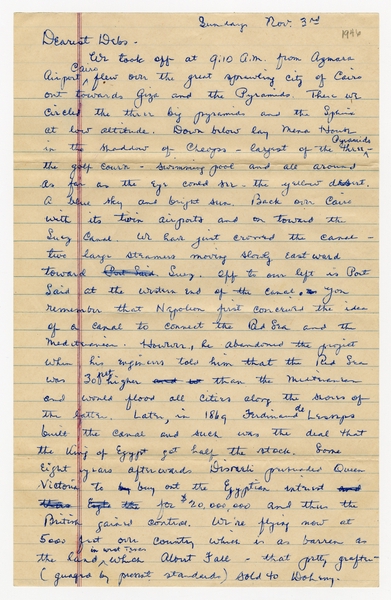 Sunday Nov. 3rd
1946
Dearest Debs -
We took off at 9:10 A.M. from
Cairo
Airport, flew over the great sprawling city of Cairo
out towards Giza and the Pyramids. There we
circled the three big pyramids and the Sphinx
at low altitude. Down below lay Mena House
Pyramids
in the shadow of Cheops - largest of the three
the golf course - swimming pool and all around
as far as the eye could see - the yellow desert.
A blue sky and bright sun. Back over Cairo
with its twin airports and on toward the
Suez Canal. We have just crossed the canal -
two large steamers moving slowly eastward
toward Port Said. Suez. Off to our left is Port
Said at the western end of the canal. You
remember that Napoleon first conceived the idea
of a canal to connect the Red Sea and the
Mediterranean. However, he abandoned the project
when his engineers told him that the Red Sea
feet
was 30 higher than the Mediterranean
and would flood all cities along the shores of
de
the latter. Later, in 1869 Ferdinand Lesseps
built the canal and such was the deal that
the King of Egypt got half the stock. Some
Eight years afterwards Disraeli persuaded Queen
Victoria to buy out the Egyptian interest
for $20,000,000 and thus the
British gained control. We're flying now at
5000 feet over country which is as barren as
in West Texas
the land, which Fall - that petty grafter -
(guaged by present standards) sold to Doheny.